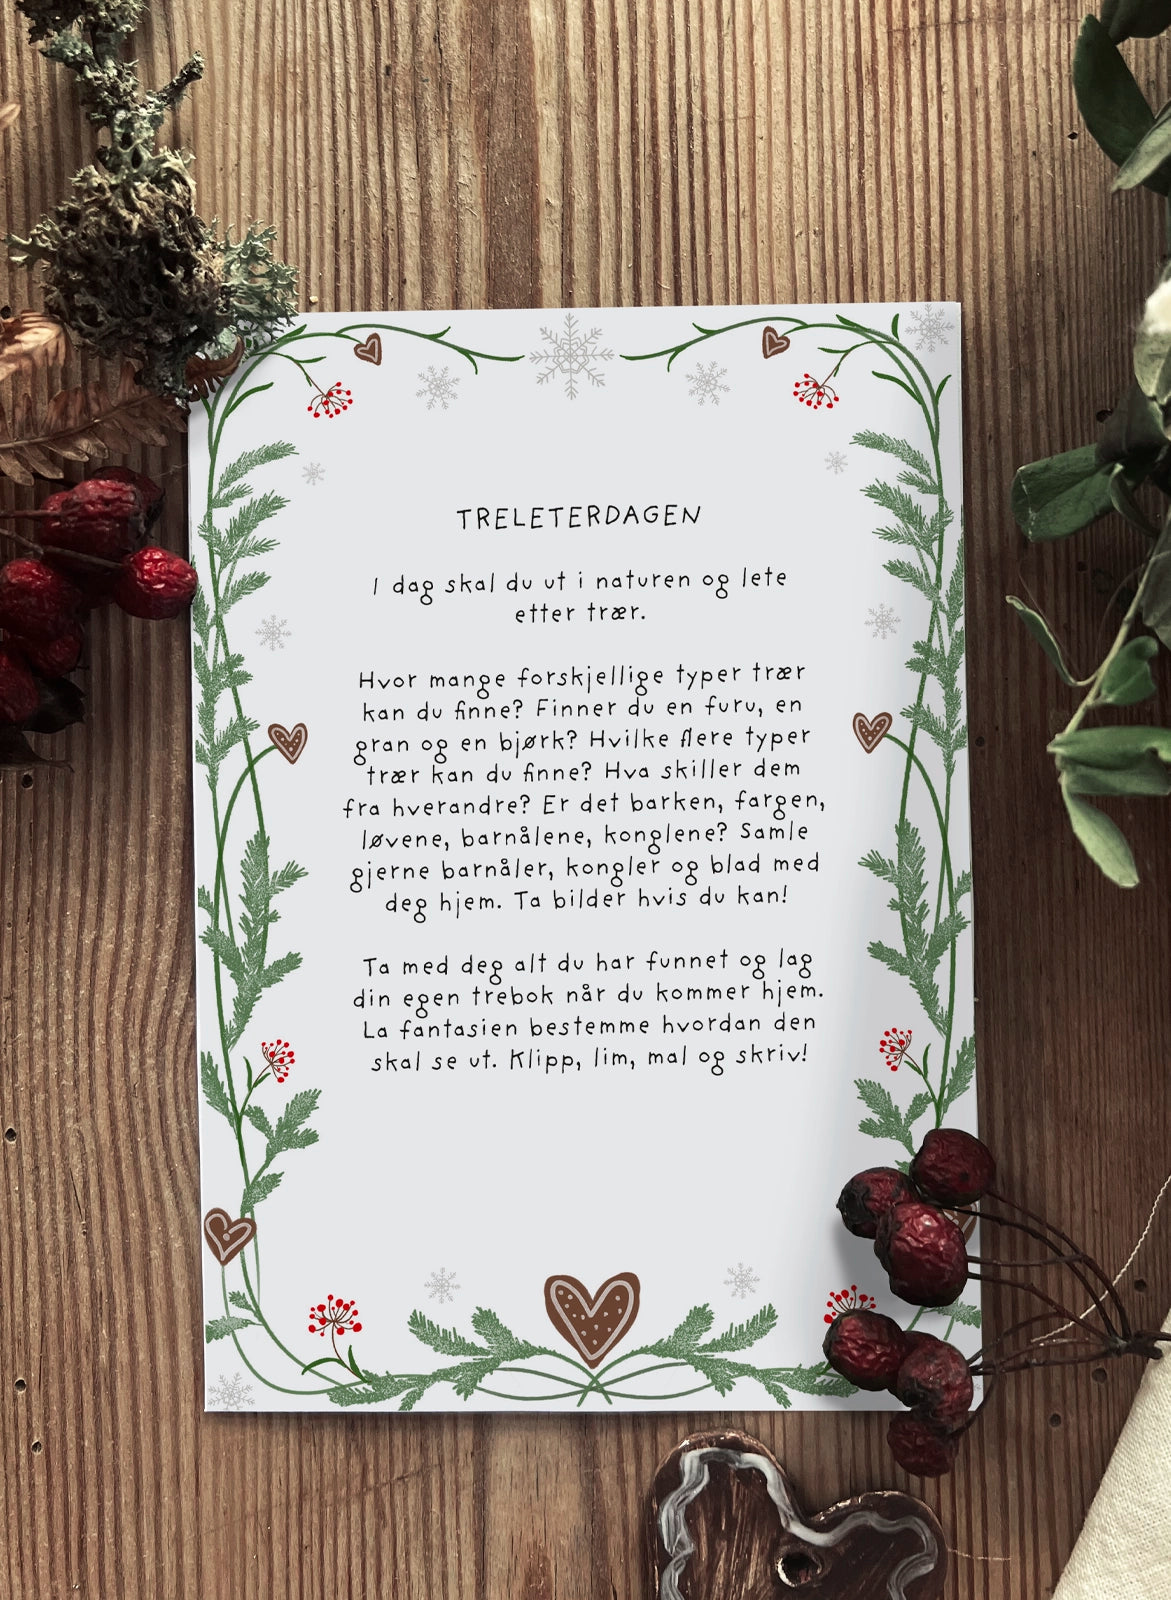 TRELETERDAGEN
I dag skal du ut i naturen og lete
etter trær.
Hvor mange forskjellige typer trær
kan du finne? Finner du en furu, en
gran og en bjørk? Hvilke flere typer
trær kan du finne? Hva skiller dem
fra hverandre? Er det barken, fargen,
løvene, barnålene, konglene? Samle
gjerne barnåler, kongler og blad med
deg hjem. Ta bilder hvis du kan!
Ta med deg alt du har funnet og lag
din egen trebok når du kommer hjem.
La fantasien bestemme hvordan den
skal se ut. Klipp, lim, mal og skriv!